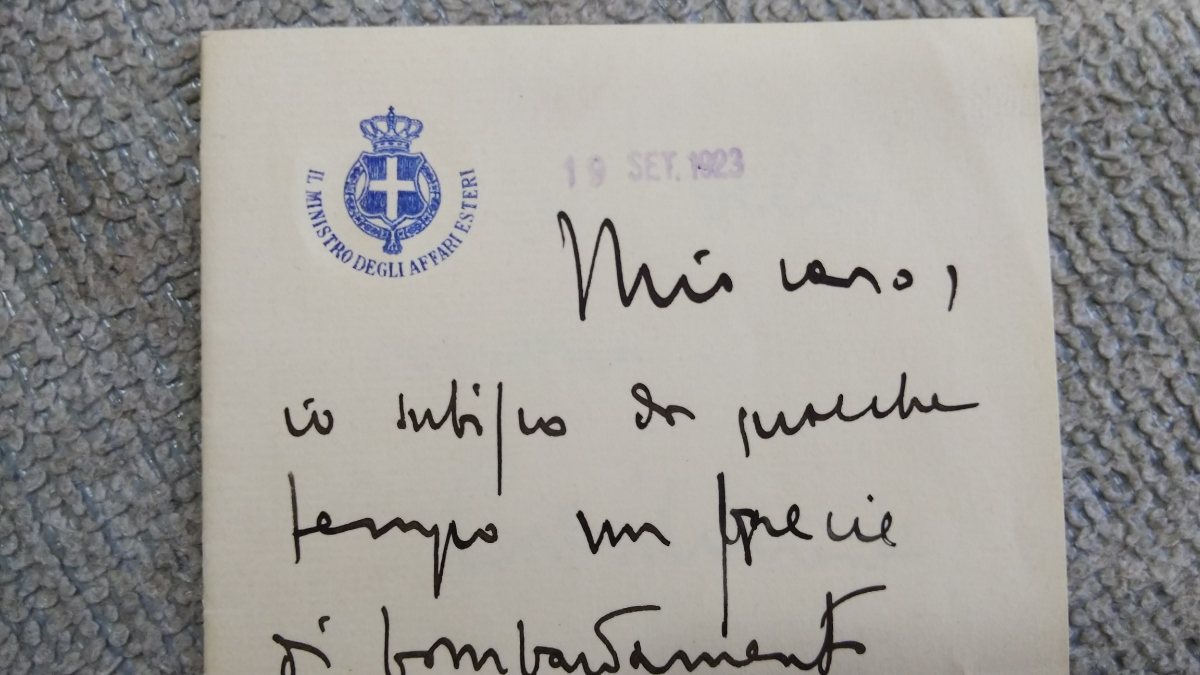 IL MINISTRO DEGLI AFFARI ESTERI
19 SET. 1923
Mio caro,
io subisco da qualche
tempo un specie
di bombardamento